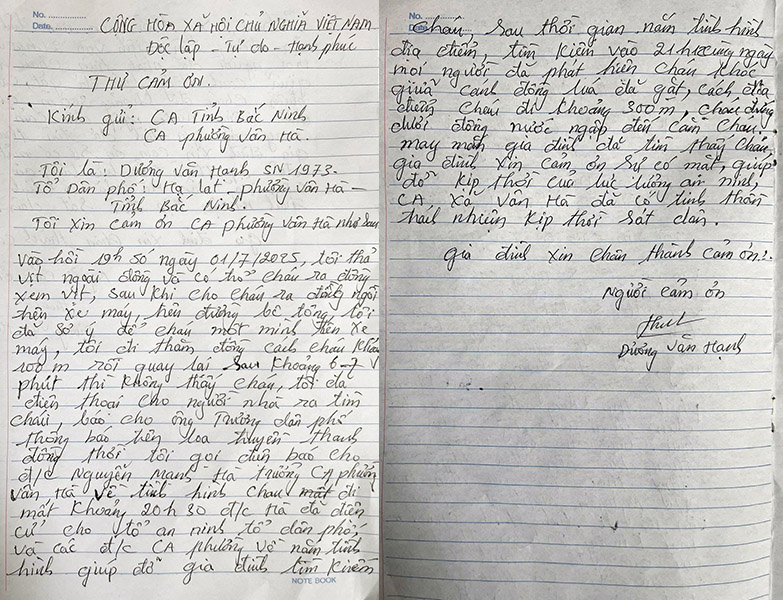 No. ............
Date. ............
CỘNG HÒA XÃ HỘI CHỦ NGHĨA VIỆT NAM
Độc lập - Tự do - Hạnh phúc
THƯ CẢM ƠN.
Kính gửi: CA Tỉnh Bắc Ninh
CA phường Vân Hà.
Tôi là: Dương Văn Hạnh SN 1973.
Tổ Dân phố: Hạ lát - phường Vân Hà -
Tỉnh Bắc Ninh.
Tôi xin cảm ơn CA phường Vân Hà như sau
Vào hồi 19h 50 ngày 01/7/2025, tôi thả
vịt ngoài đồng và có trở cháu ra đồng
xem vịt, sau khi cho cháu ra đồng ngồi
trên xe máy, trên đường bê tông tôi
đã sơ ý để cháu một mình trên xe
máy, tôi đi thăm đồng cách cháu
100 m rồi quay lại sau khoảng 6-7
phút thì không thấy cháu, tôi đã
điện thoại cho người nhà ra tìm
cháu, báo cho ông Trưởng dân phố
thông báo trên loa truyền thanh
đồng thời tôi gọi điện báo cho
đ/c Nguyễn Mạnh Hà trưởng CA phường
Vân Hà về tình hình cháu mất đi
mất khoảng 20h 30 đ/c Hà đã điên
cử cho tổ an ninh tổ dân phố,
và các đ/c CA phường về nắm tình
hình giúp đỡ gia đình tìm kiếm
NOTE BOOK
No. ............
Date. ............
Cháu, sau thời gian nắm tình hình
địa điểm, tìm kiếm vào 21h cùng ngày
mọi người đã phát hiện cháu khóc
giữa cánh đồng lúa đã gặt, cách địa
điểm cháu đi khoảng 300m, cháu đứng
dưới đồng nước ngập đến cằm cháu.
may mắn gia đình đã tìm thấy cháu,
gia đình xin cảm ơn sự có mặt, giúp
đỡ kịp thời của lực lượng an ninh,
CA xã Vân Hà đã có tinh thần
trách nhiệm kịp thời sát dân.
Gia đình xin chân thành cảm ơn!.
Người cảm ơn
Dương Văn Hạnh